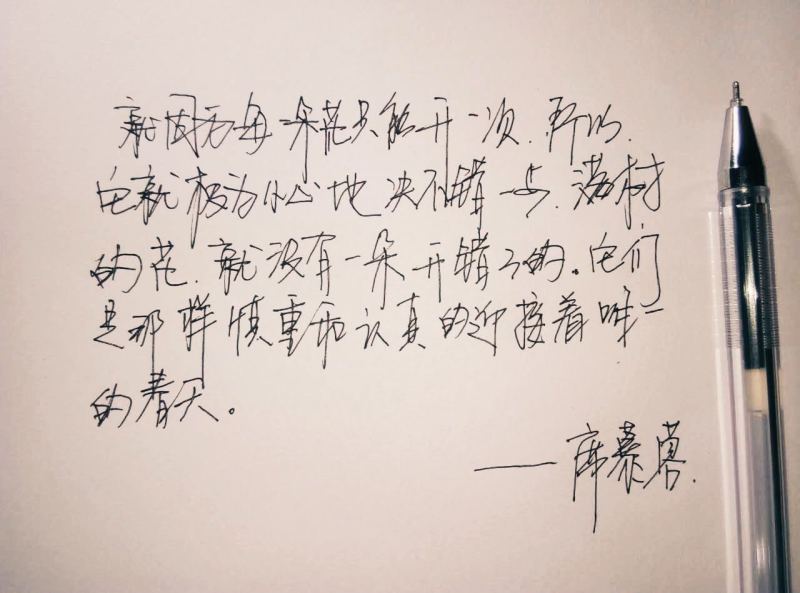 就因为每一朵花只能开一次，所以，
它就极为小心地决不错一步，满树
的花，就没有一朵开错了的。它们
是那样慎重和认真的迎接着唯一
的春天。
——席慕蓉.